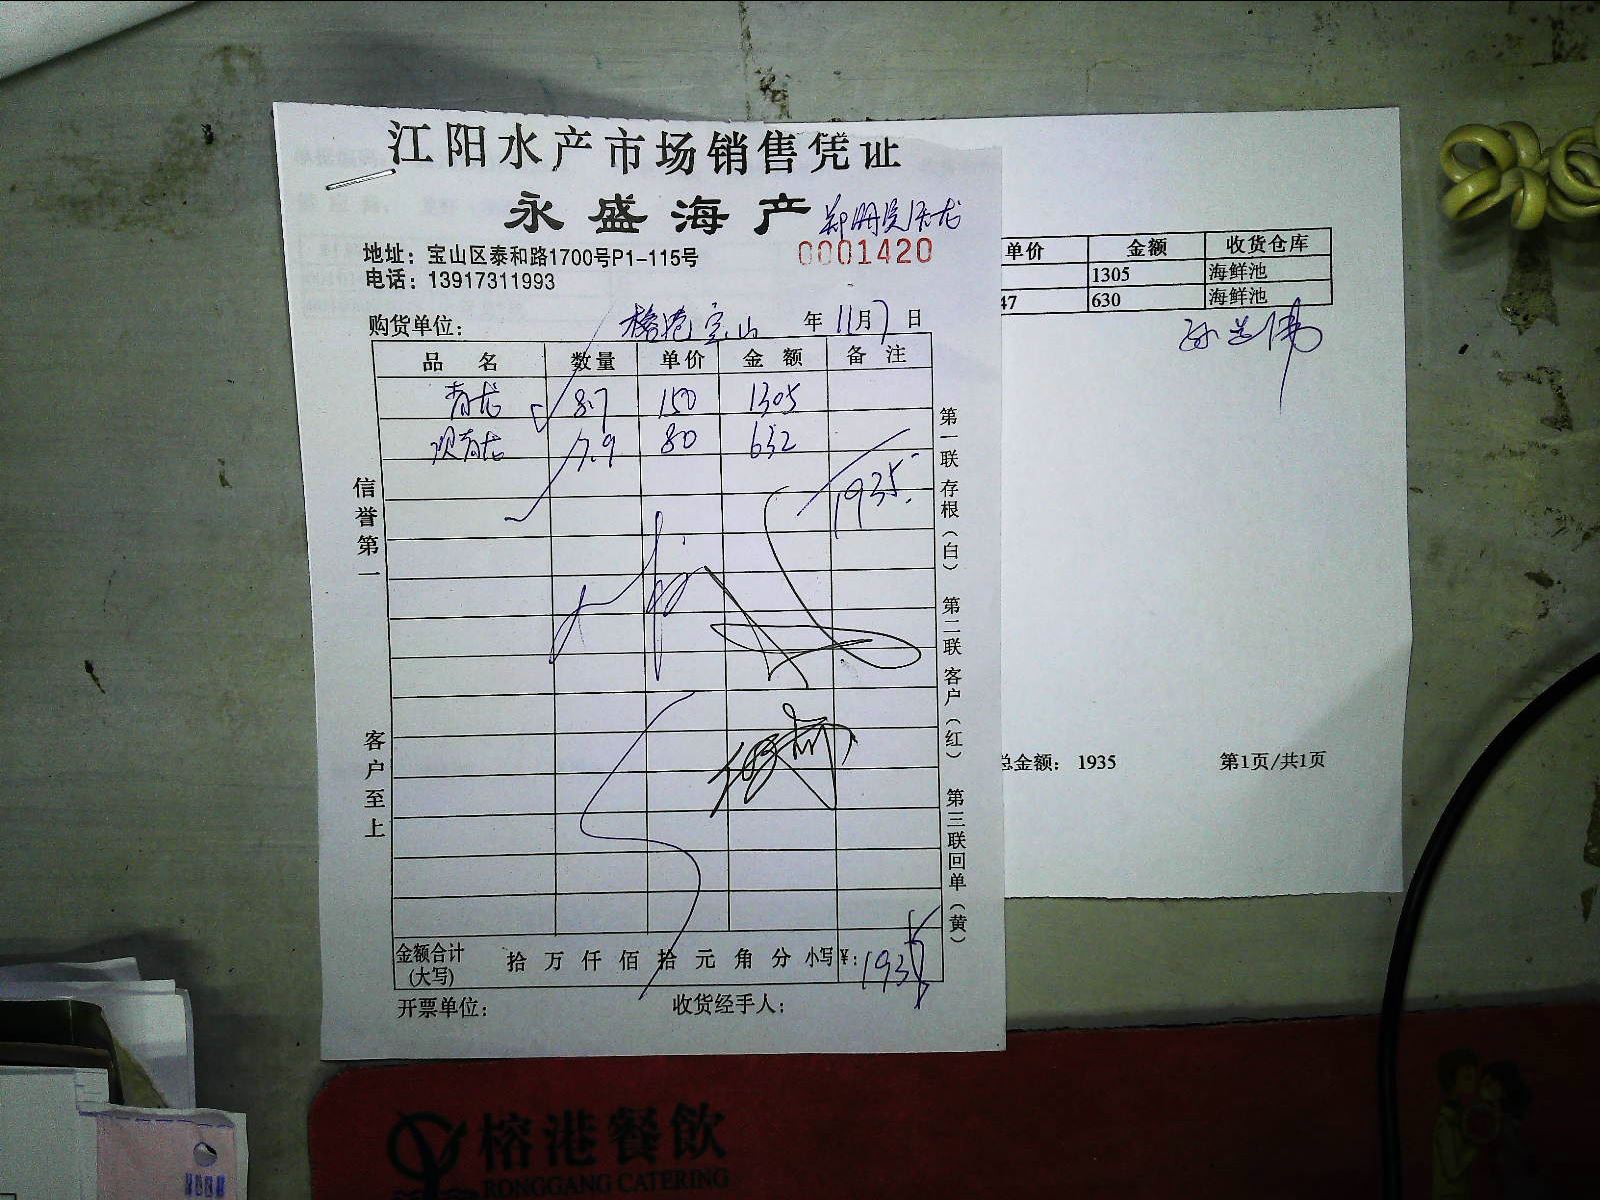 江阳水产市场销售凭证
永盛海产
0001420
地址：宝山区泰和路1700号P1-115号
电话：13917311993
购货单位： 榕港宝山 年 11月7日
品名 数量 单价 金额 备注
青龙 8.7 150 1305
7.9 80 632
1935.
信誉第一
客户至上
第一联存根（白） 第二联客户（红） 第三联回单（黄）
金额合计(大写) 拾 万 仟 佰 拾 元 角 分 小写¥： 1935
开票单位： 收货经手人：
单价 金额 收货仓库
1305 海鲜池
47 630 海鲜池
总金额： 1935 第1页/共1页
榕港餐飲
RONGGANG CATERING